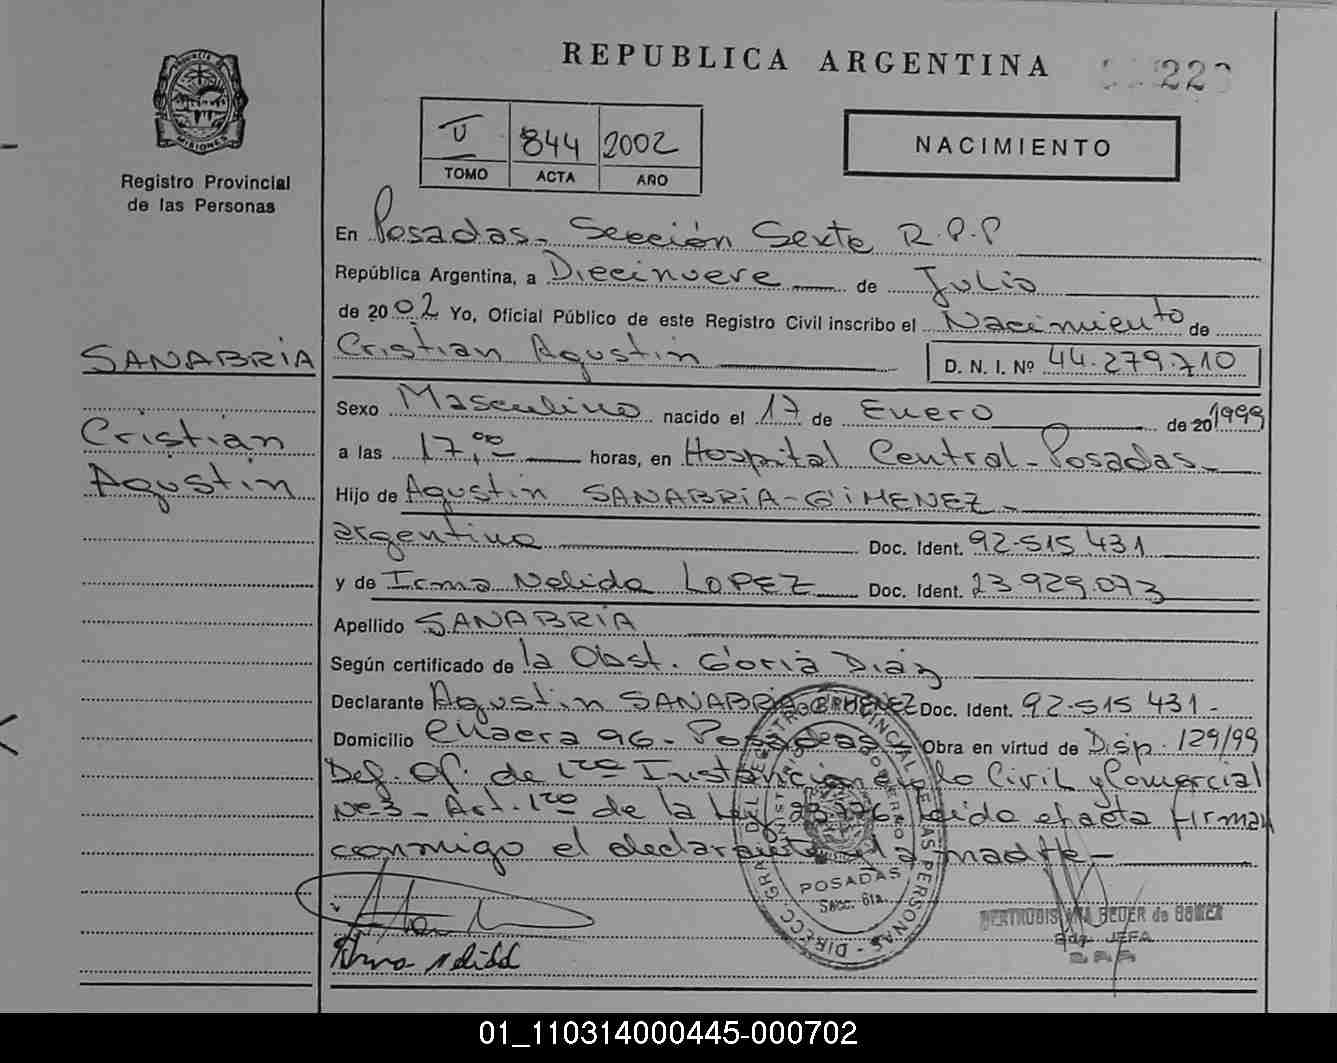 REPUBLICA ARGENTINA
223
PROVINCIA DE
MISIONES
Registro Provincial
de las Personas
II 844 2002
TOMO ACTA AÑO
NACIMIENTO
En Posadas - Sección Sexta R.P.P
República Argentina, a Diecinueve de Julio
de 2002 Yo, Oficial Público de este Registro Civil inscribo el Nacimiento de
Cristian Agustin D. N. I. Nº 44.279.710
SANABRIA
Cristian
Agustin
Sexo Masculino nacido el 17 de Enero de 20 1999
a las 17,00 horas, en Hospital Central - Posadas -
Hijo de Agustin SANABRIA - GIMENEZ -
argentino Doc. Ident. 92.515.431
y de Irma Nelida LOPEZ Doc. Ident. 23.929.073
Apellido SANABRIA
Según certificado de la Obst. Gloria Diaz
Declarante Agustin SANABRIA GIMENEZ Doc. Ident. 92.515 431 -
Domicilio Chacra 96 - Posadas - Obra en virtud de Disp. 129/99
Def. Of. de 1ra Instancia en lo Civil y Comercial
Nº 3 - Art. 1ro de la Ley Leida el acta firman
conmigo el declarante y la madre -
DIRECC. GRAL. DEL REGISTRO PROVINCIAL DE LAS PERSONAS
MINISTERIO GOBIERNO
POSADAS
Secc. 6ta.
Irma Nelida
JEFA
01_110314000445-000702